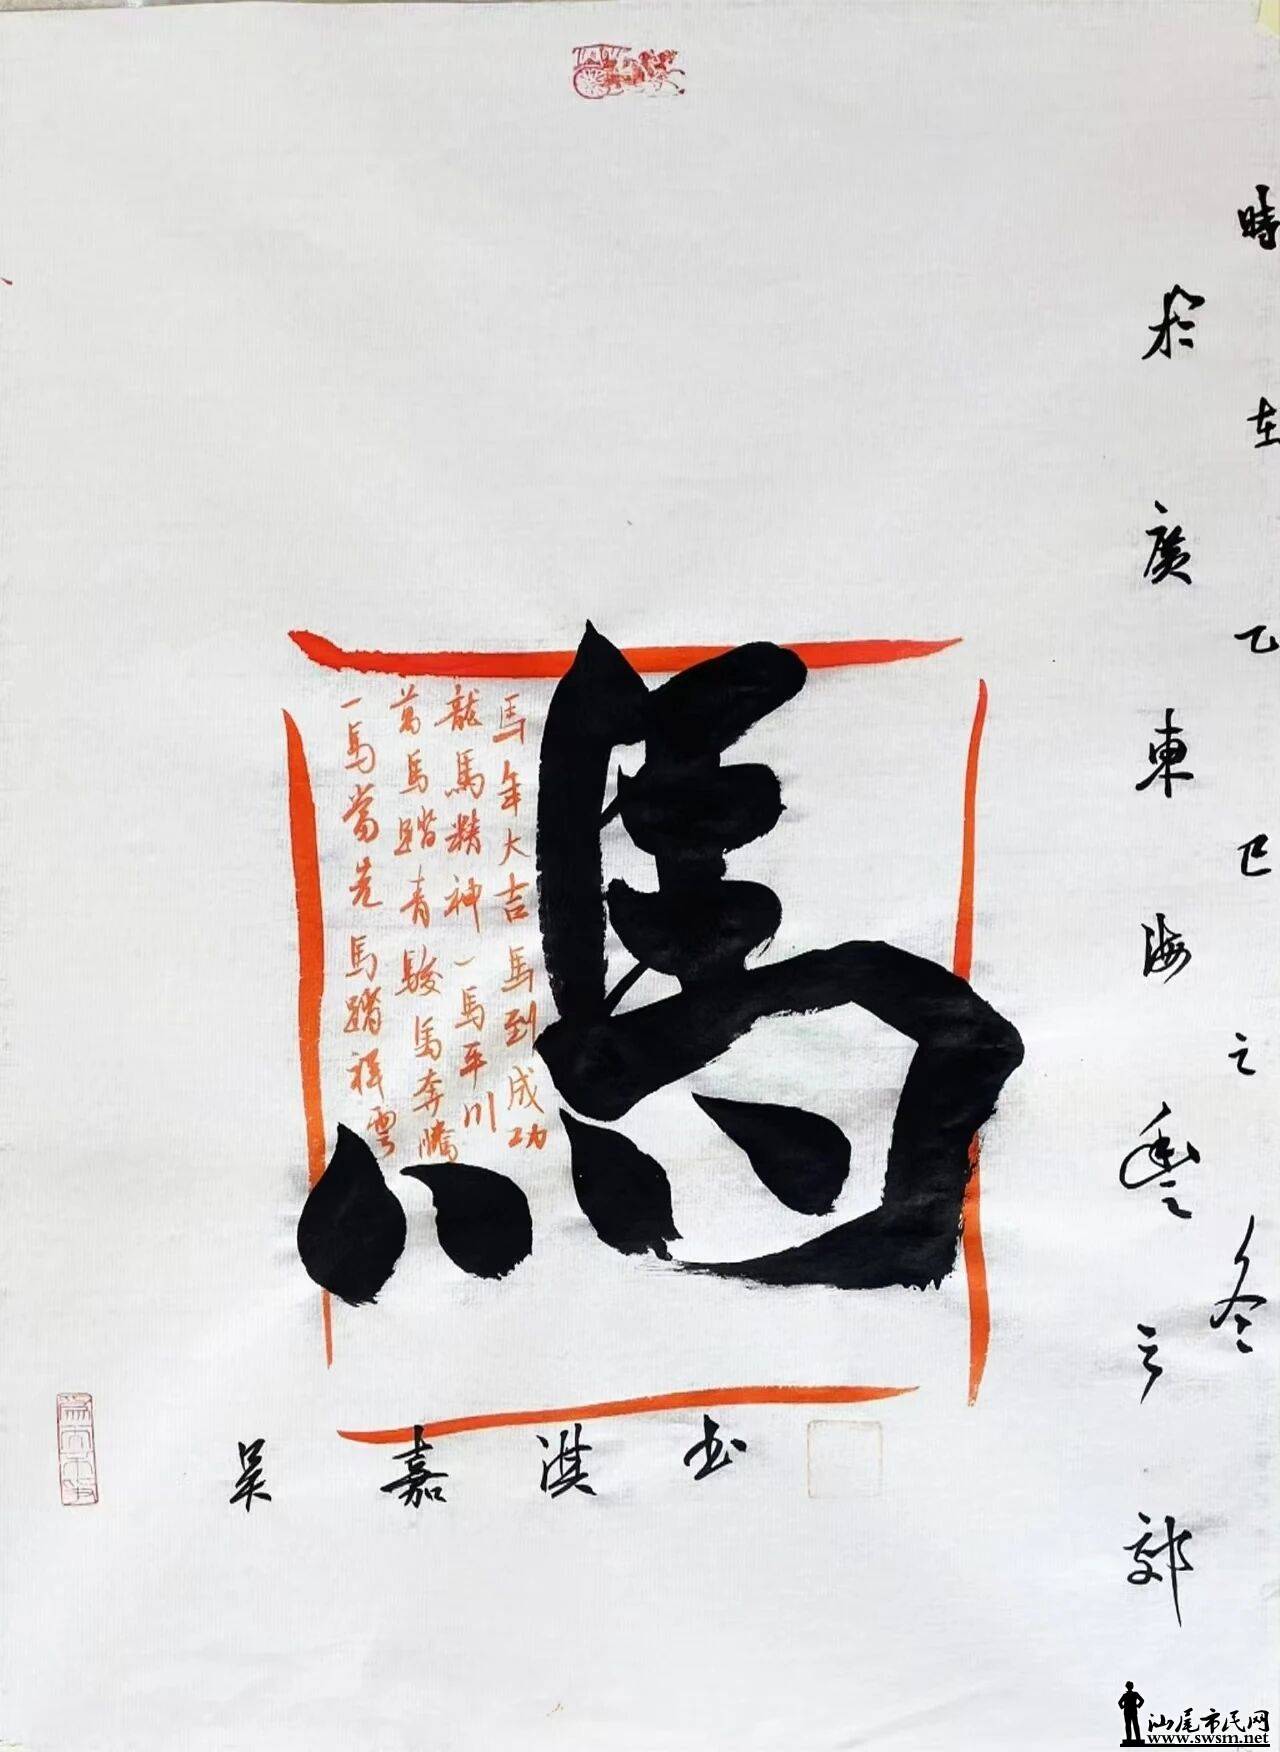 時在乙巳之冬
於廣東海豐之郊
馬
馬年大吉馬到成功
龍馬精神一馬平川
萬馬踏青駿馬奔騰
一馬當先馬踏祥雲
吴嘉淇书
汕尾市民网
www.swsm.net